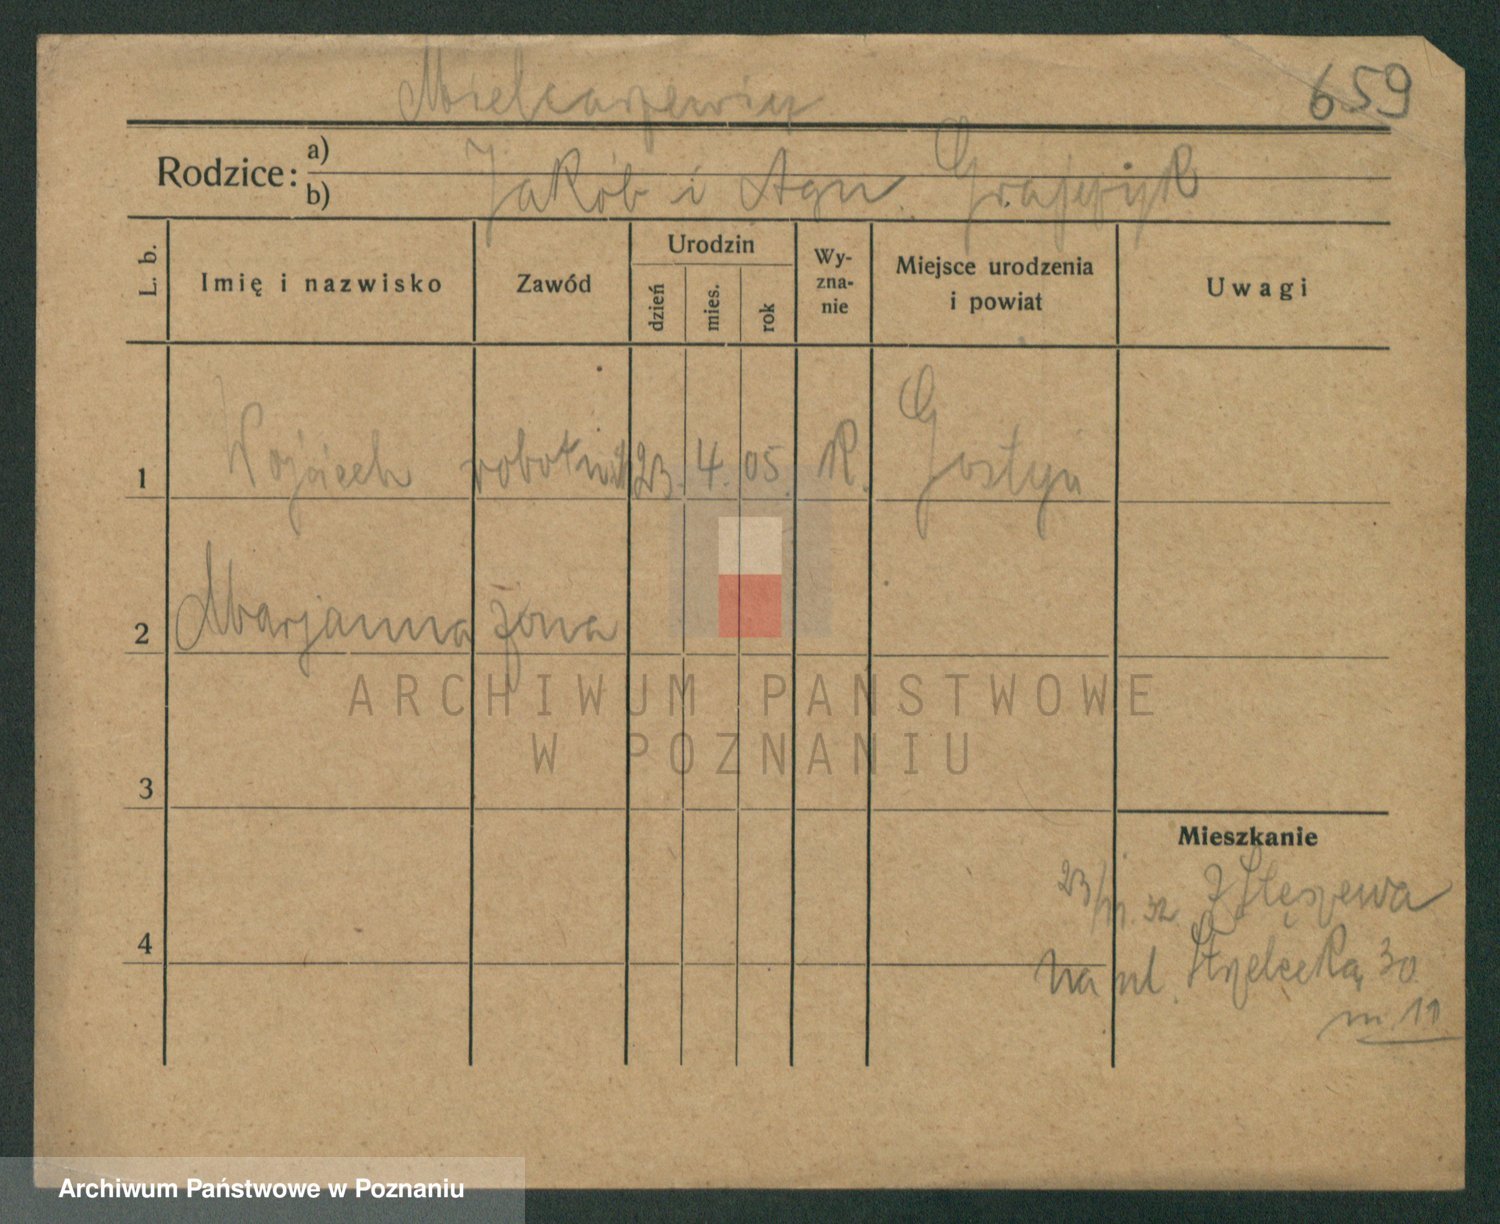 659
Rodzice: a)
b)
Jakób i Agn.
L. b.
Imię i nazwisko
Zawód
Urodzin
dzień
mies.
rok
Wy-
zna-
nie
Miejsce urodzenia
i powiat
Uwagi
1 Wojciech robotnik 23. 4. 05. R. Gostyń
2 Marjanna żona
ARCHIWUM PAŃSTWOWE
W POZNANIU
3
Mieszkanie
z Stęszewa
4
na ul. Strzelecką 30
m. 11
Archiwum Państwowe w Poznaniu